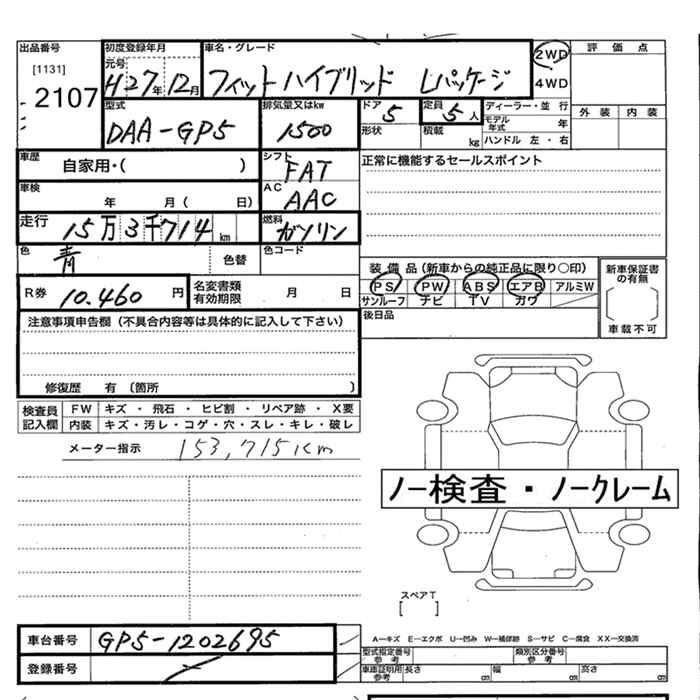 出品番号 初度登録年月 車名・グレード 2WD 評価点
[1131] 元号
2107 H27年12月 フィットハイブリッド Lパッケージ 4WD
型式 排気量又はkw ドア 定員 ディーラー・並行 外装 内装
DAA-GP5 1500 5 5人 モデル年式 年
形状 積載 kg ハンドル 左・右
車歴 自家用・( ) シフト FAT 正常に機能するセールスポイント
車検 年 月( 日) AC AAC
走行 15万3千714km 燃料 ガソリン
色 青 色替 色コード
装備品(新車からの純正品に限り○印) 新車保証書の有無
R券 10.460円 名変書類有効期限 月 日 PS PW ABS エアB アルミW
サンルーフ ナビ TV カワ
注意事項申告欄(不具合内容等は具体的に記入して下さい) 後日品 車載不可
修復歴 有(箇所 )
検査員記入欄 FW キズ・飛石・ヒビ割・リペア跡・X要
内装 キズ・汚レ・コゲ・穴・スレ・キレ・破レ
メーター指示 153,715km
ノー検査・ノークレーム
スペアT
[ ]
車台番号 GP5-1202695 A—キズ E—エクボ U—凹み W—補修跡 S—サビ C—腐食 XX—交換済
型式指定番号 参考 類別区分番号 参考
登録番号 車庫証明用 参考 長さ cm 幅 cm 高さ cm